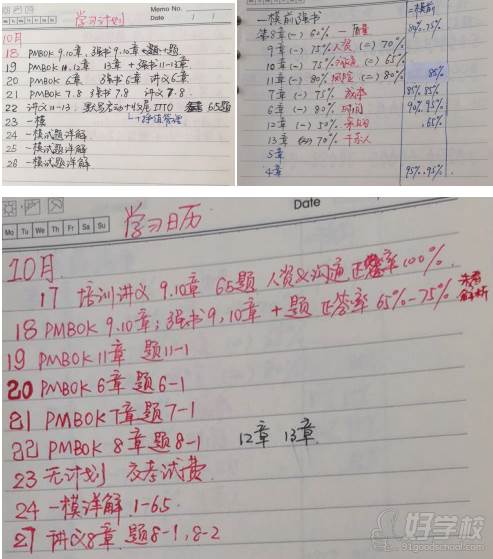 学习计划
Memo No.
Date / /
10月
18 PMBOK 9.10章, 强书9.10章+题+题
19 PMBOK 11.12章 13章 + 强书11-13章
20 PMBOK 6章 强书6章 讲义6章
21 PMBOK 7.8 强书7.8 讲义7.8
22 讲义11-13. 默写启动+收尾ITTO 65题
23 一模
挣值管理
24 一模试题详解
25 一模试题详解
26 一模试题详解
一模前强书
一模前
第8章(一) 60% — 质量
80%.75%
9章(一) 75% 人资 (二) 70%
10章(一) 75% 沟通 (二) 65%
11章(一) 80% 风险 (二) 80%
85%
7章(一) 75% 成本
85%.85%
6章(一) 80% 时间
90%.95%
12章(一) 50% 采购
.65%
13章 70% 干系人
5章
4章
95%.95%
学习日历
Date
Mo Tu We Th Fr Sa Su
10月
17 培训讲义 9.10章 65题 人资&沟通 正答率100%
18 PMBOK 9.10章; 强书9,10章 + 题 正答率 65%-75% 未看解析
19 PMBOK 11章 题11-1
20 PMBOK 6章 题6-1
21 PMBOK 7章 题7-1
22 PMBOK 8章 题8-1 12章 13章
23 无计划 交考试费
24 一模详解 1-65
27 讲义8章 题8-1, 8-2
好学校
91goodschool.com